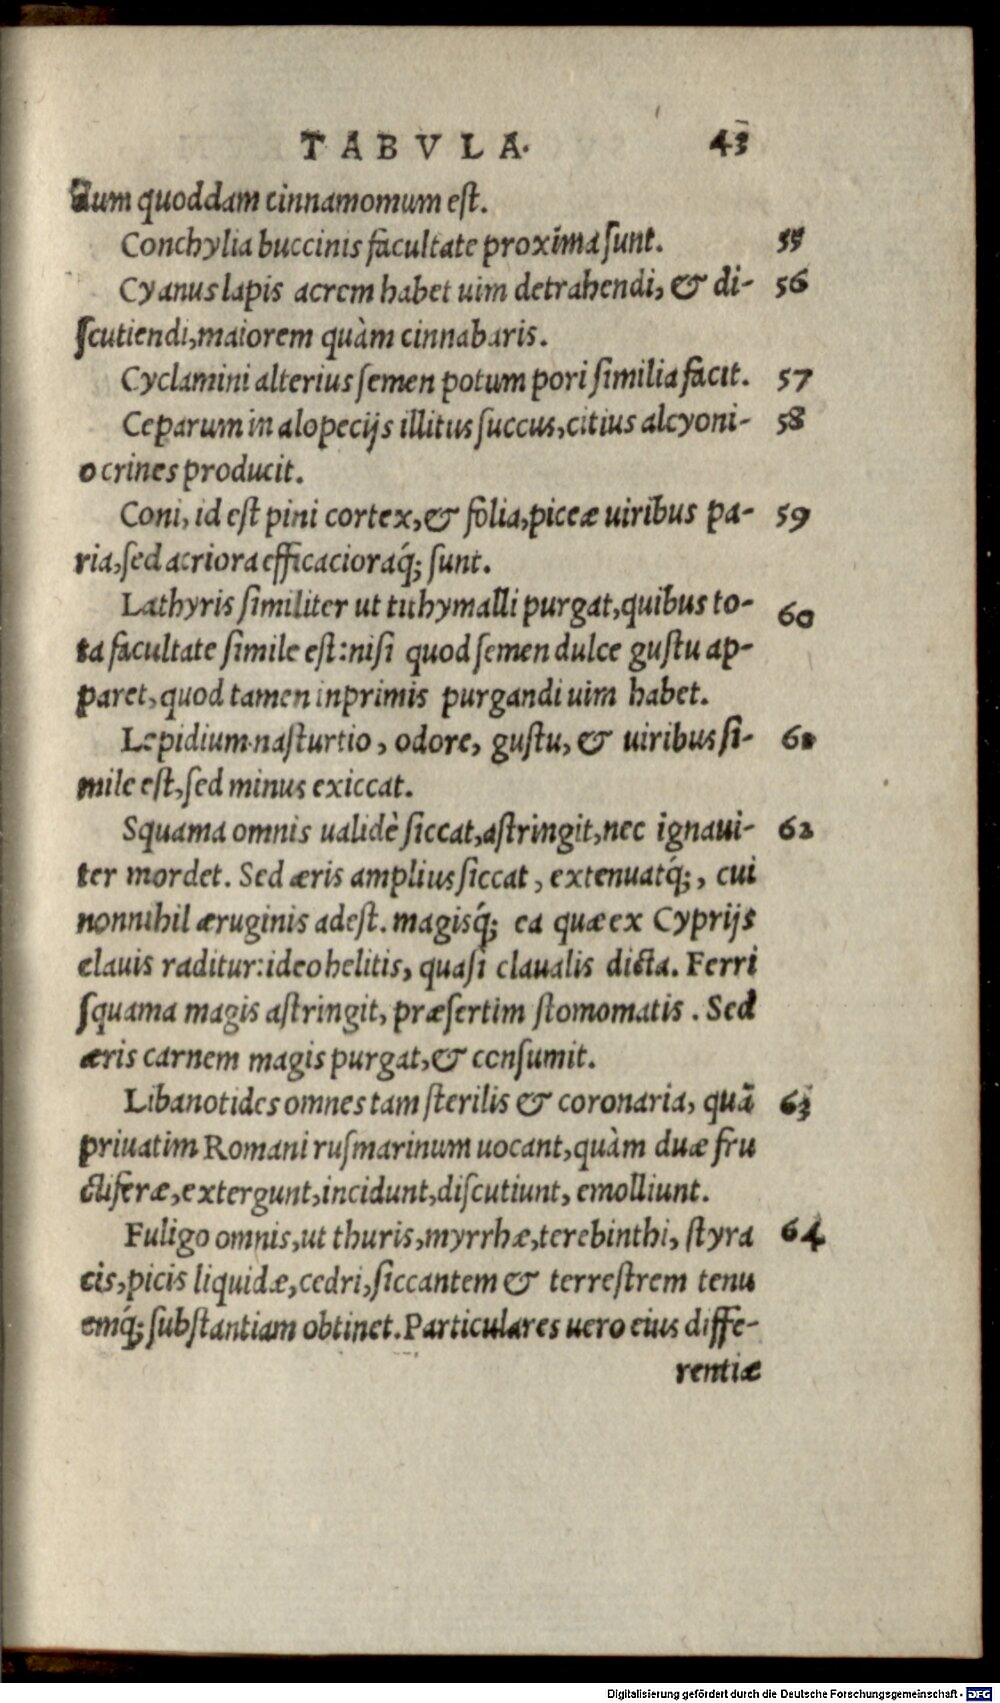 TABVLA. 43
dum quoddam cinnamomum est.
Conchylia buccinis facultate proxima sunt. 55
Cyanus lapis acrem habet uim detrahendi, & di- 56
scutiendi, maiorem quàm cinnabaris.
Cyclamini alterius semen potum pori similia facit. 57
Ceparum in alopecijs illitus succus, citius alcyoni- 58
o crines producit.
Coni, id est pini cortex, & folia, piceæ uiribus pa- 59
ria, sed acriora efficacioraq́; sunt.
Lathyris similiter ut tithymalli purgat, quibus to- 60
ta facultate simile est: nisi quod semen dulce gustu ap-
paret, quod tamen inprimis purgandi uim habet.
Lepidium nasturtio, odore, gustu, & uiribus si- 61
mile est, sed minus exiccat.
Squama omnis ualidè siccat, astringit, nec ignaui- 62
ter mordet. Sed æris amplius siccat, extenuatq́;, cui
nonnihil æruginis adest. magisq́; ea quæ ex Cyprijs
clauis raditur: ideo helitis, quasi claualis dicta. Ferri
squama magis astringit, præsertim stomomatis. Sed
æris carnem magis purgat, & consumit.
Libanotides omnes tam sterilis & coronaria, quā 63
priuatim Romani rusmarinum uocant, quàm duæ fru
ctiferæ, extergunt, incidunt, discutiunt, emolliunt.
Fuligo omnis, ut thuris, myrrhæ, terebinthi, styra 64
cis, picis liquidæ, cedri, siccantem & terrestrem tenu
emq́; substantiam obtinet. Particulares uero eius diffe-
rentiæ
Digitalisierung gefördert durch die Deutsche Forschungsgemeinschaft - DFG